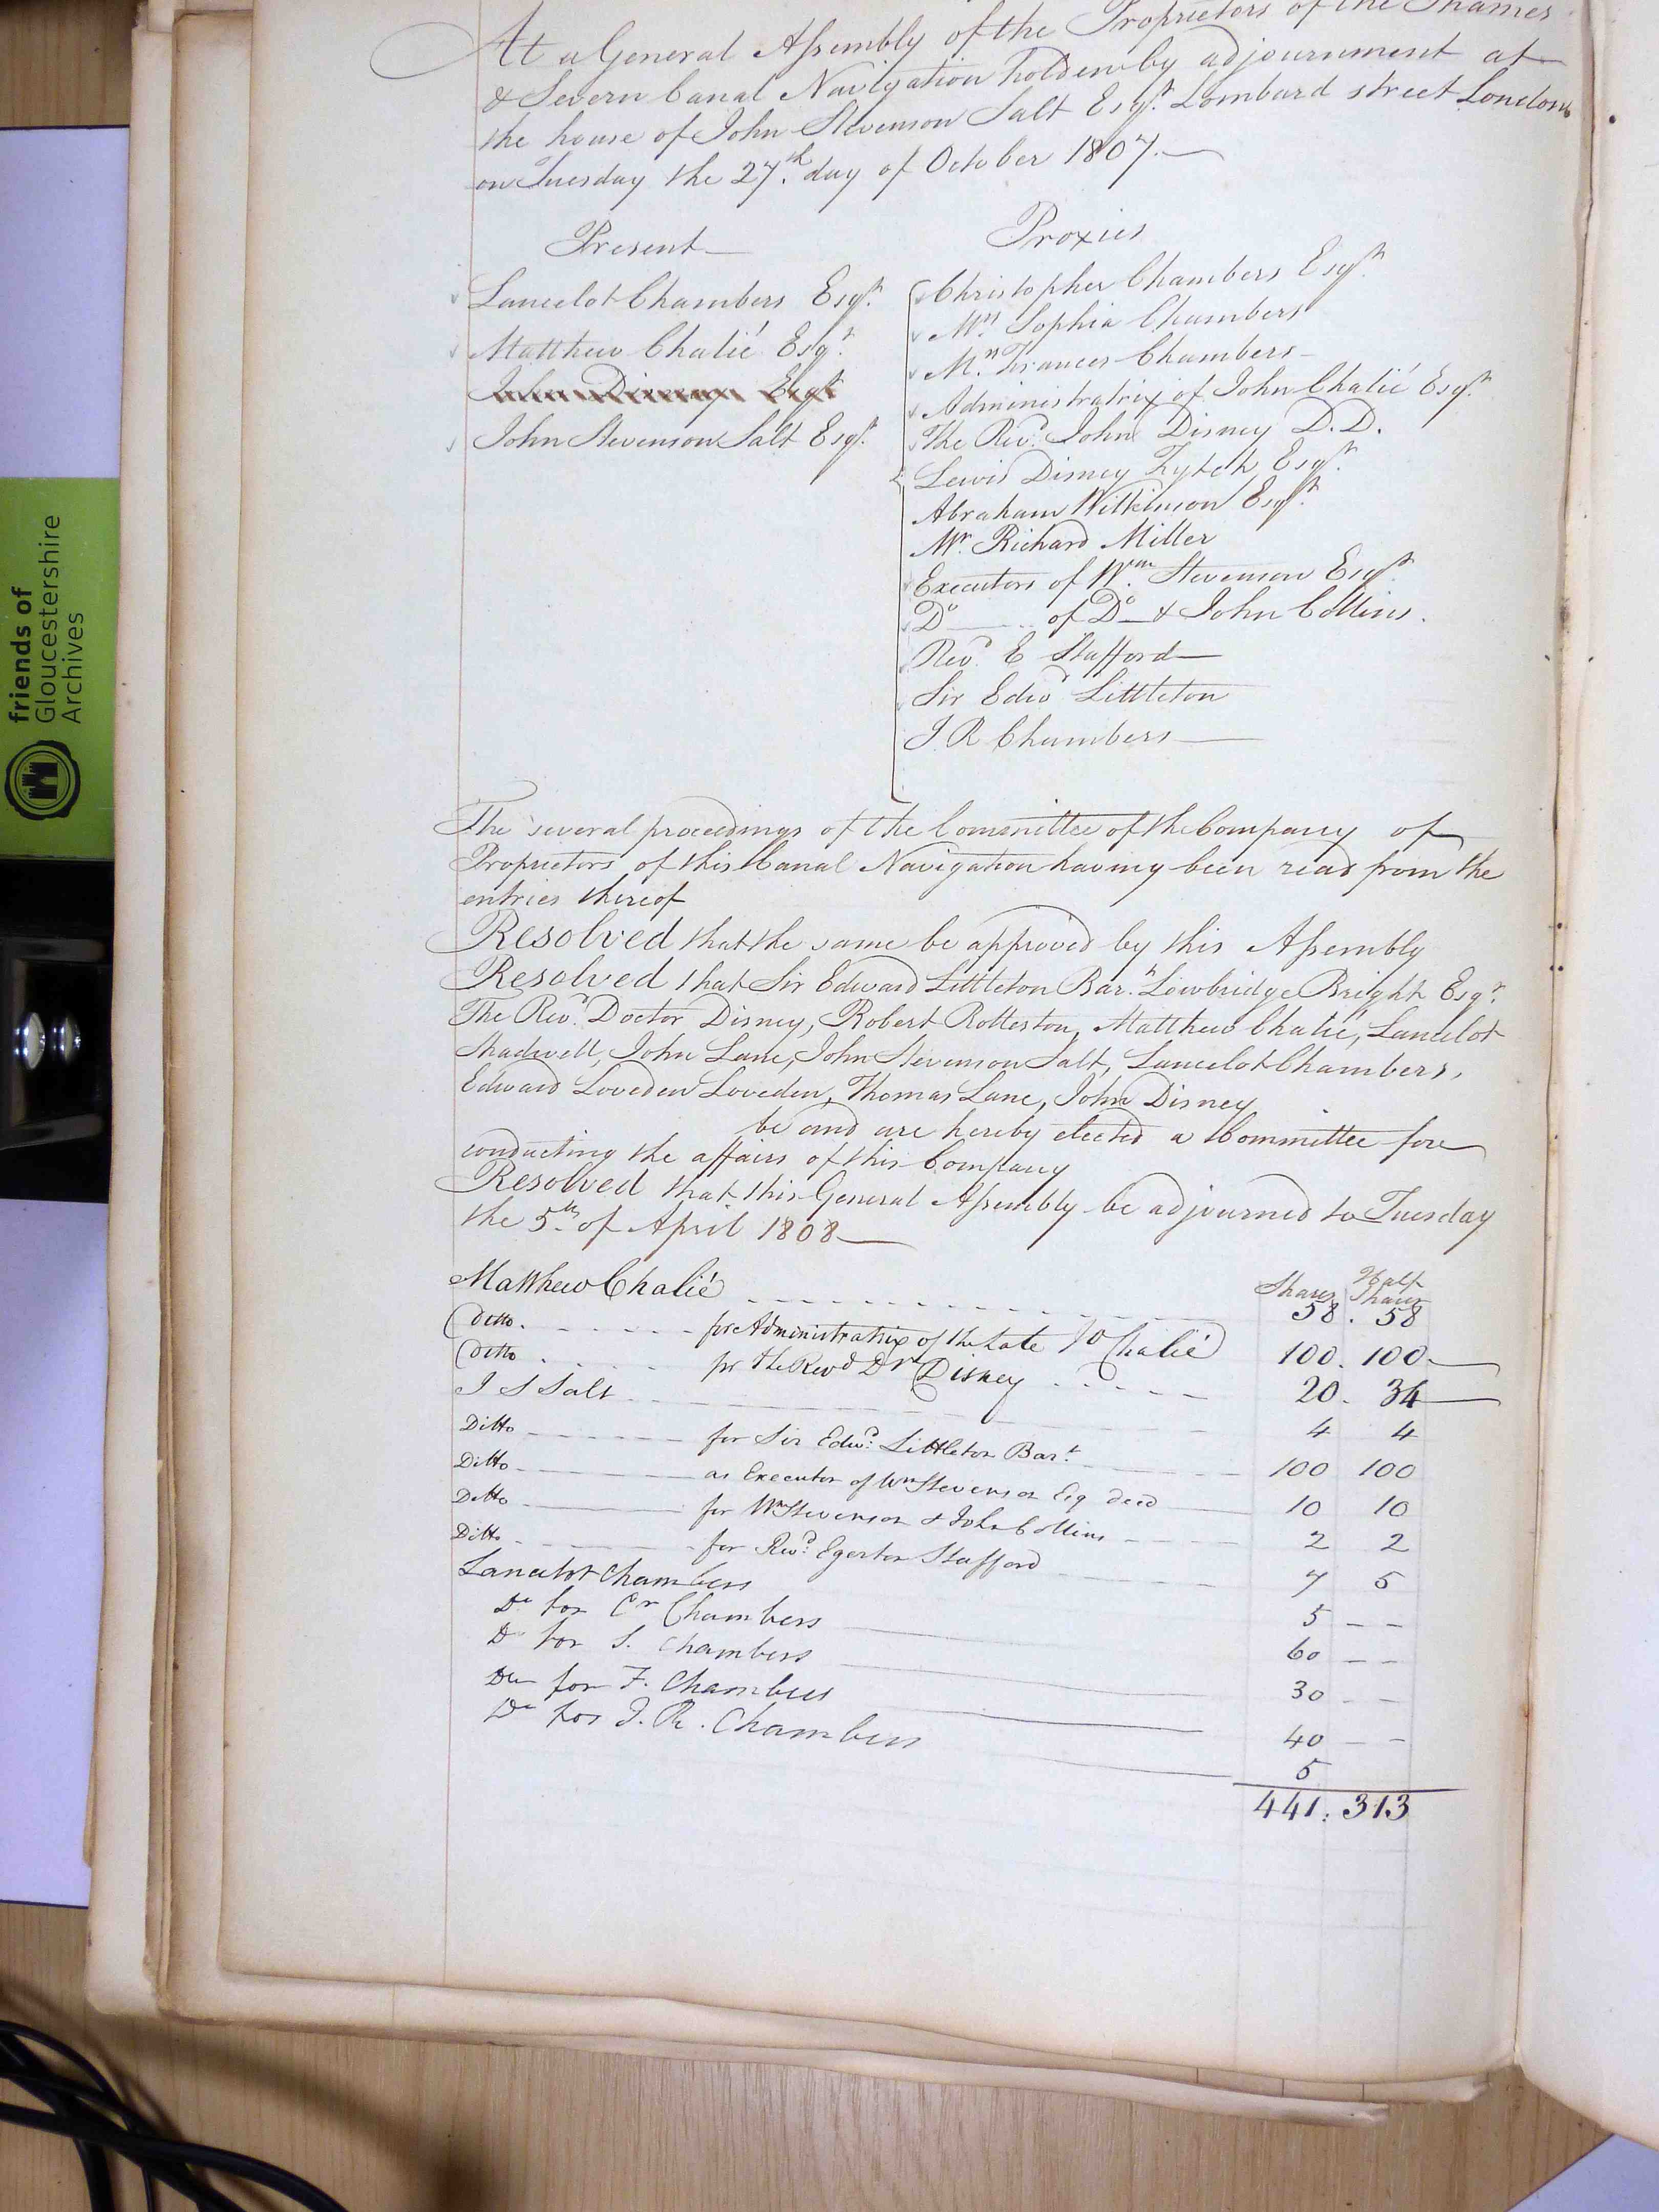 At a General Assembly of the Proprietors of the Thames
& Severn Canal Navigation holden by adjournment at
the house of John Stevenson Salt Esqr. Lombard street London
on Tuesday the 27th day of October 1807.
Present
Lancelot Chambers Esqr.
Matthew Chalié Esqr.
John Disney Esqr
John Stevenson Salt Esqr.
Proxies
Christopher Chambers Esqr.
Mrs. Sophia Chambers
Mrs. Frances Chambers
Administratrix of John Chalié Esqr.
The Revd. John Disney D.D.
Lewis Disney Fytch Esqr.
Abraham Wilkinson Esqr.
Mr. Richard Miller
Executors of Wm. Stevenson Esqr.
Do of Do & John Collins.
Revd. E Stafford
Sir Edwd Littleton
J R Chambers
The several proceedings of the Committee of the Company of
Proprietors of this Canal Navigation having been read from the
entries thereof
Resolved that the same be approved by this Assembly
Resolved that Sir Edward Littleton Bart. Lowbridge Bright Esqr.
The Revd. Doctor Disney, Robert Rolleston, Matthew Chalié, Lancelot
Shadwell, John Lane, John Stevenson Salt, Lancelot Chambers,
Edward Loveden Loveden, Thomas Lane, John Disney
be and are hereby elected a Committee for
conducting the affairs of this Company
Resolved that this General Assembly be adjourned to Tuesday
the 5th of April 1808
Shares Half Shares
Matthew Chalié 58. 58
Ditto. for Administratrix of the late Jo Chalié 100. 100
Ditto for the Revd Dr Disney 20. 34
J S Salt 4 4
Ditto for Sir Edwd. Littleton Bart. 100 100
Ditto as Executor of Wm Stevenson Esq decd 10 10
Ditto for Wm Stevenson & John Collins 2 2
Ditto for Revd. Egerton Stafford 7 5
Lancelot Chambers 5 - -
Do for Cr Chambers 60 - -
Do for S. Chambers 30 - -
Do for F. Chambers 40 - -
Do for J. R. Chambers 5
441. 313
friends of
Gloucestershire
Archives